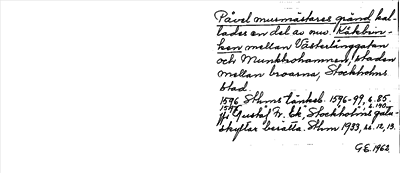 Påvel murmästares gränd kal-
lades en del av nuv. Kåkbrin-
ken mellan Västerlånggatan
och Munkbrohamnen, staden
mellan broarna, Stockholms
stad.
1596 Sthms tänkeb. 1596-99, s. 85.
Jfr Gustaf Fr. Ek, Stockholms gatu-
skyltar berätta. Sthm 1933, ss. 12, 13.
G.E. 1963